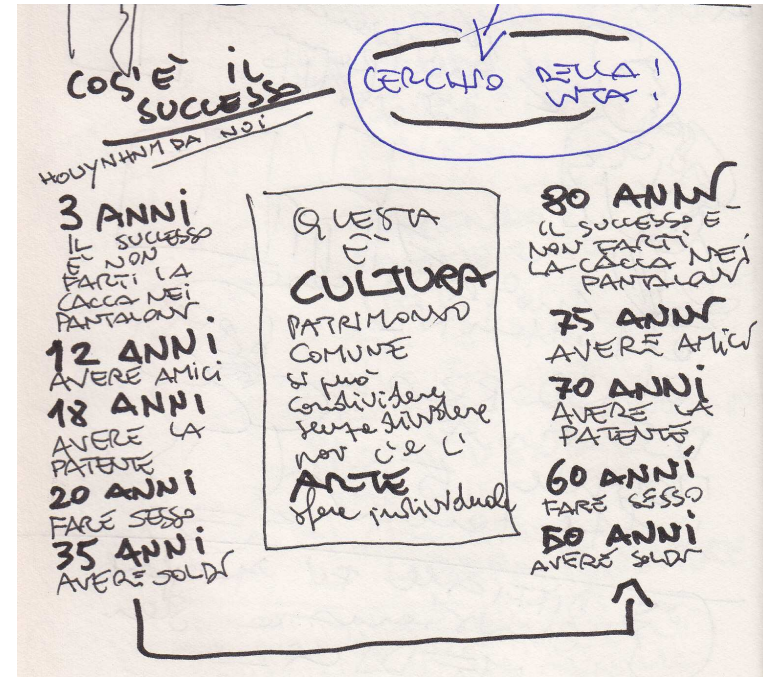 COS'È IL
SUCCESSO
HOUYNHNM DA NOI
CERCHIO DELLA
VITA!
3 ANNI
IL SUCCESSO
È NON
FARTI LA
CACCA NEI
PANTALONI
12 ANNI
AVERE AMICI
18 ANNI
AVERE LA
PATENTE
20 ANNI
FARE SESSO
35 ANNI
AVERE SOLDI
QUESTA
È
CULTURA
PATRIMONIO
COMUNE
si può
condividere
senza dividere
poi c'è l'
ARTE
sfera individuale
80 ANNI
IL SUCCESSO È
NON FARTI
LA CACCA NEI
PANTALONI
75 ANNI
AVERE AMICI
70 ANNI
AVERE LA
PATENTE
60 ANNI
FARE SESSO
50 ANNI
AVERE SOLDI